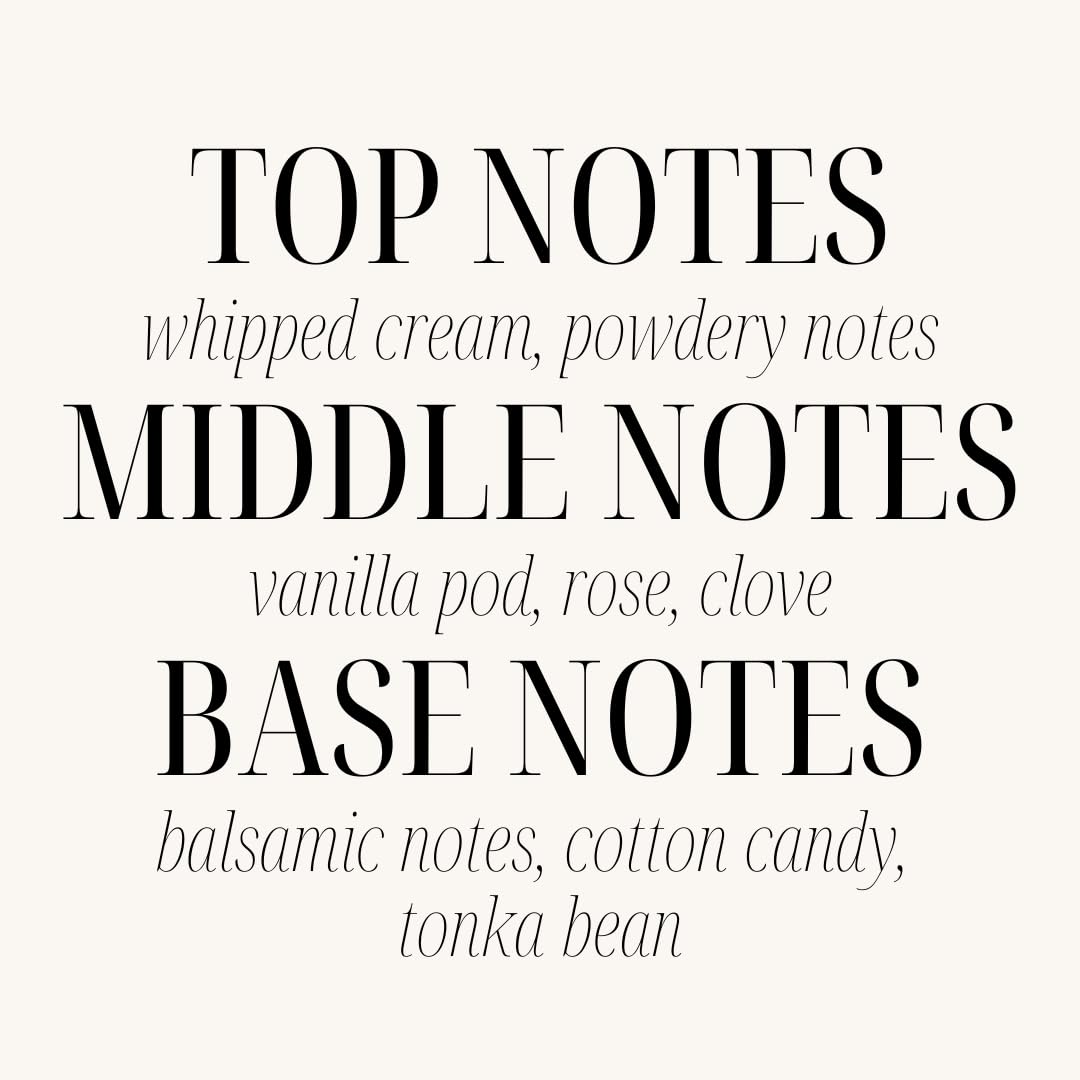 TOP NOTES
whipped cream, powdery notes
MIDDLE NOTES
vanilla pod, rose, clove
BASE NOTES
balsamic notes, cotton candy,
tonka bean